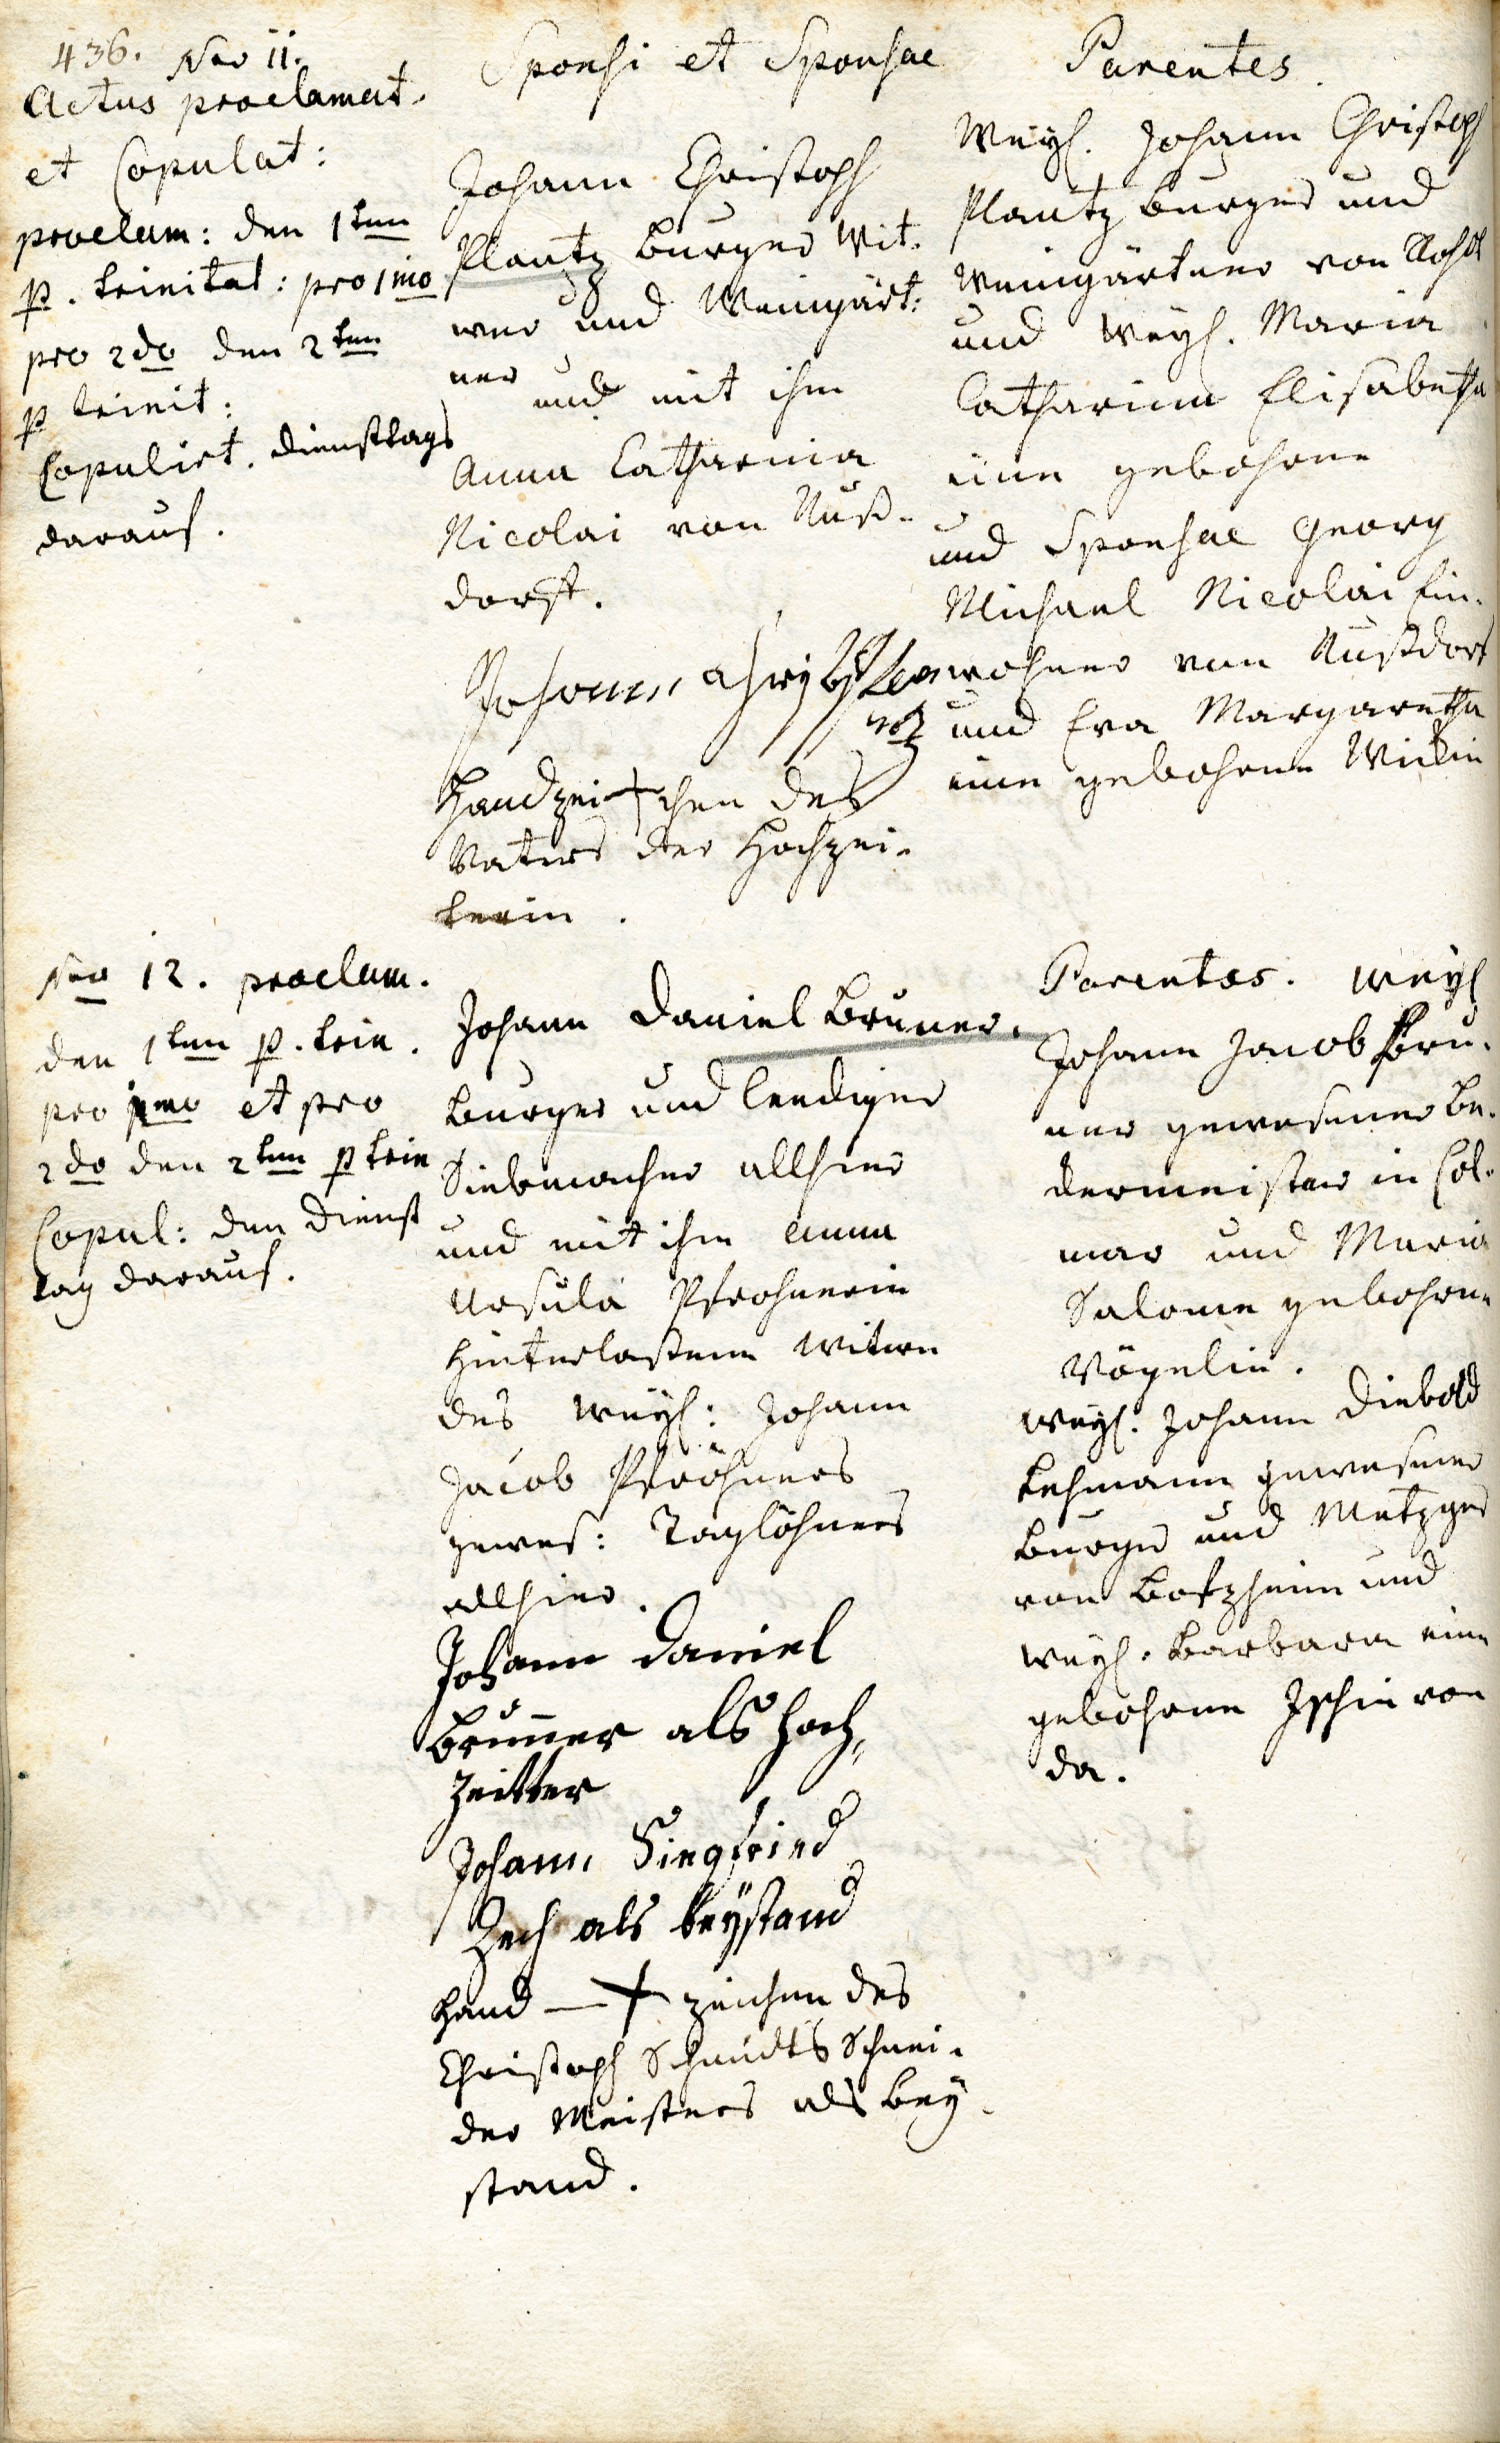 436. Nro 11.
Actus proclamat.
et Copulat:
proclam: den 1ten
p. trinitat: pro 1mo
pro 2do den 2ten
p trinit:
Copulirt. dienstags
darauf.
Sponsi et Sponsae
Johann Christoph
Plantz burger Wit.
wer und Weingärt:
ner
und mit ihm
Anna Catharina
Nicolai von Nuß-
dorff.
Johann
Handzei + chen des
Vaters der Hochzei-
terin.
Parentes.
Weyl. Johann Christoph
Plantz burger und
Weingärtner von
und Weyl. Maria
Catharina Elisabetha
eine gebohrne
und Sponsae Georg
Michael Nicolai Ein-
wohner von Nußdorf
und Eva Margaretha
eine gebohrne
Nro 12. proclam.
den 1ten p. trin.
pro 1mo et pro
2do den 2ten p trin
Copul: den Dienst
tag darauf.
Johann Daniel Bruner.
burger und leediger
Siebmacher allhier
und mit ihm Anna
Ursula Pfrohnerin
hinterlaßene Witwe
des weyl: Johann
Jacob Pfrohners
gewes: Taglöhners
allhier.
Johann Daniel
Brunner als hoch,
zeitter
Johann Siegfried
Zech als beystand
Hand — + zeichen des
Christoph Schmidts Schnei-
der Meisters als bey-
stand.
Parentes. weyl
Johann Jacob Bru-
ner gewesener
dermeister in Col-
mar und Maria
Salome gebohrne
Vögelin.
weyl. Johann Diebold
Lehmann gewesener
burger und Metzger
von Botzheim und
weyl. Barbara eine
gebohrne von
da.